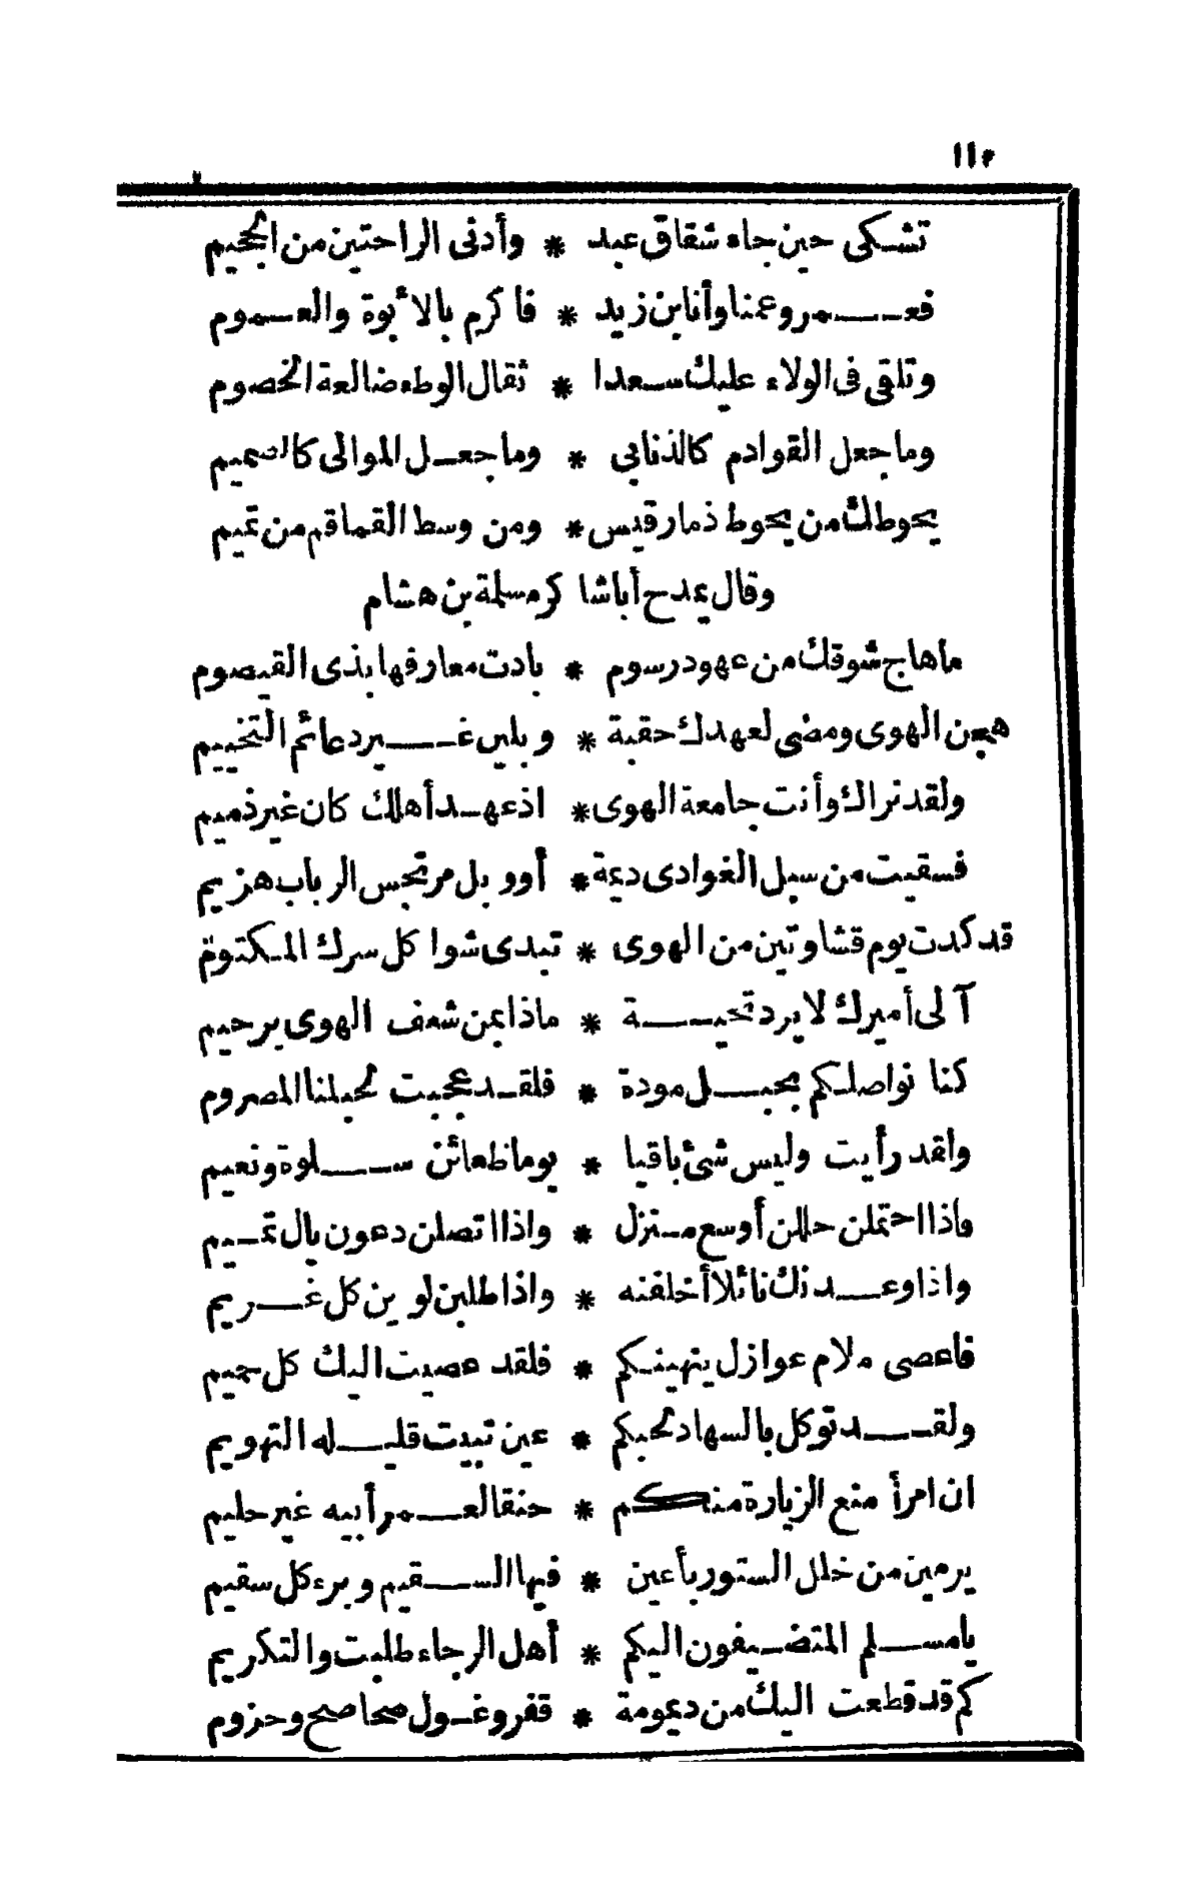 ١١٢
تشكى حين جاء شقاق عبد * وأدنى الراحتين من الجحيم
فعمرو عمنا وأنا ابن زيد * فاكرم بالأبوة والعموم
وتلقى فى الولاء عليك سعدا * ثقال الوطء ضالعة الخصوم
وما جعل القوادم كالذنابى * وما جعل الموالى كالصميم
يحوطك من يحوط ذمار قيس * ومن وسط القماقم من تميم
وقال يمدح أبا شاكر مسلمة بن هشام
ما هاج شوقك من عهود رسوم * بادت معارفها بذى القيصوم
هجن الهوى ومضى لعهدك حقبة * وبلين غير دعائم التخييم
ولقد نراك وأنت جامعة الهوى * اذ عهد أهلك كان غير ذميم
فسقيت من سبل الغوادى ديمة * أو وبل مرتجس الرباب هزيم
قد كدت يوم قشاوتين من الهوى * تبدى شواكل سرك المكتوم
آلى أميرك لا يرد تحية * ماذا بمن شعف الهوى برحيم
كنا نواصلكم بحبل مودة * فلقد عجبت لحبلنا المصروم
ولقد رأيت وليس شئ باقيا * يوما ظعائن سلوة ونعيم
فاذا احتملن حللن أوسع منزل * واذا اتصلن دعون يال تميم
واذا وعدنك نائلا أخلفنه * واذا طلبن لوين كل غريم
فاعصى ملام عواذل ينهينكم * فلقد عصيت اليك كل حميم
ولقد توكل بالسهاد لحبكم * عين تبيت قليله التهويم
ان امرأ منع الزيارة منكم * حنقا لعمر أبيه غير حليم
يرمين من خلل الستور بأعين * فيها السقيم وبرء كل سقيم
يا مسلم المتضيفون اليكم * أهل الرجاء طلبت والتكريم
كم قد قطعت اليك من ديمومة * قفر وغول صحاصح وحزوم